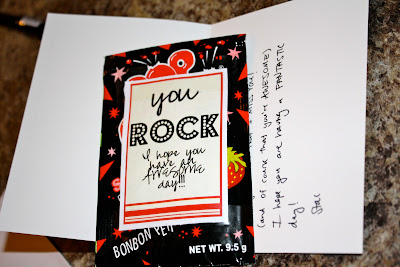 you
ROCK
I hope you
have an
AWESOME
day!!!
BONBON PET
NET WT. 9.5 g
(and of course that you're AWESOME)
I hope you are having a FANTASTIC
day!